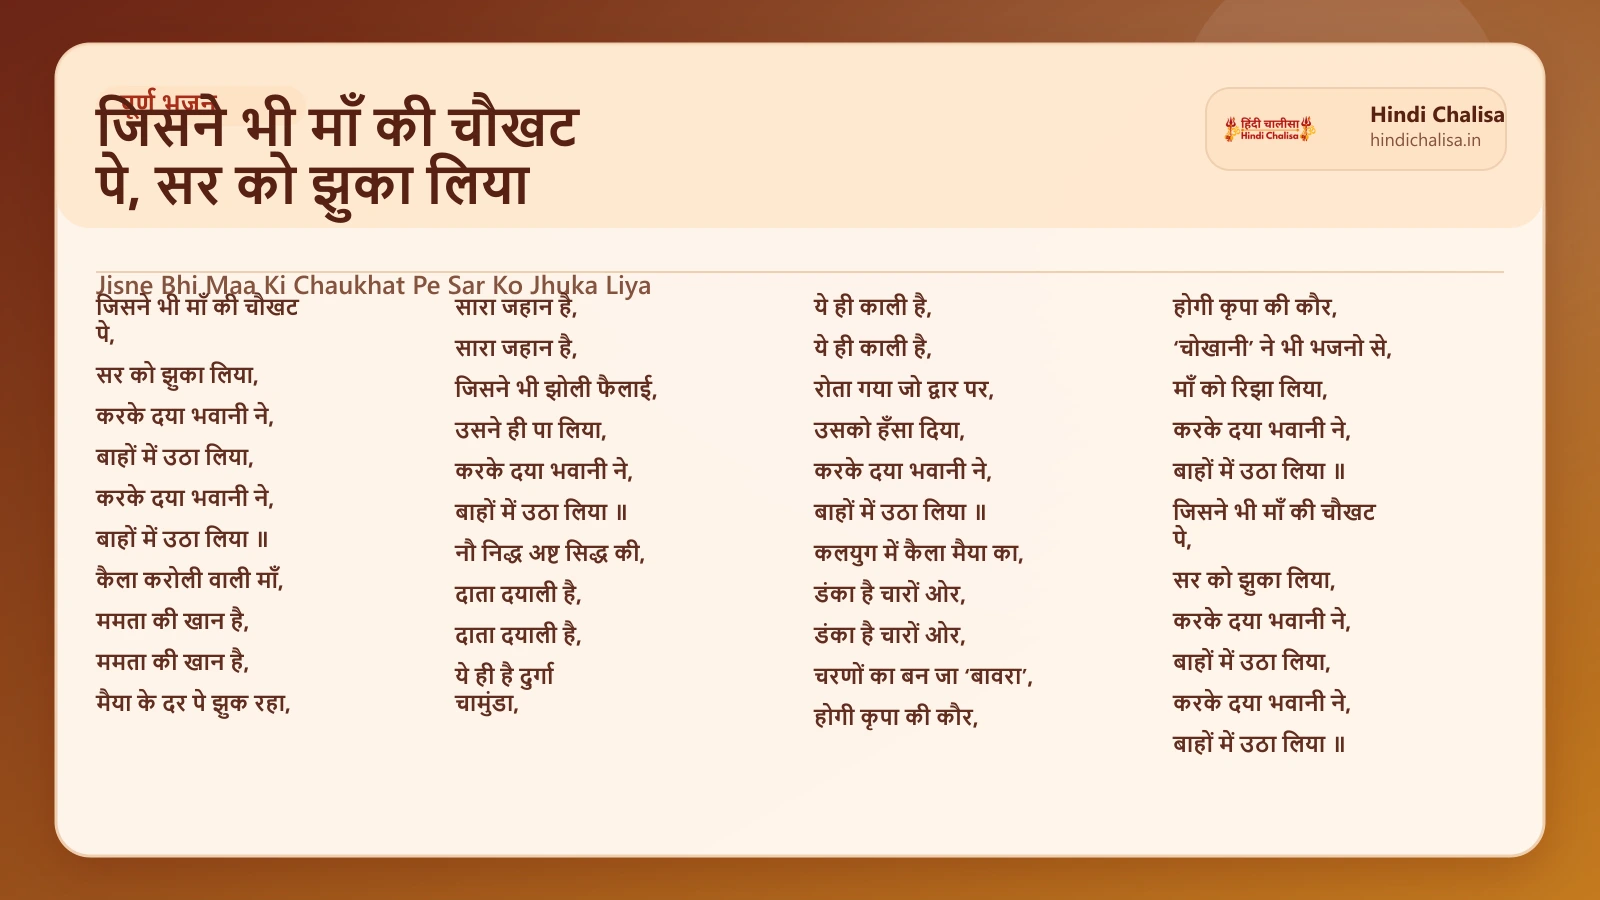 पूर्ण भजन
जिसने भी माँ की चौखट
पे, सर को झुका लिया
हिंदी चालीसा
Hindi Chalisa
Hindi Chalisa
hindichalisa.in
Jisne Bhi Maa Ki Chaukhat Pe Sar Ko Jhuka Liya
जिसने भी माँ की चौखट
पे,
सर को झुका लिया,
करके दया भवानी ने,
बाहों में उठा लिया,
करके दया भवानी ने,
बाहों में उठा लिया ॥
कैला करोली वाली माँ,
ममता की खान है,
ममता की खान है,
मैया के दर पे झुक रहा,
सारा जहान है,
सारा जहान है,
जिसने भी झोली फैलाई,
उसने ही पा लिया,
करके दया भवानी ने,
बाहों में उठा लिया ॥
नौ निद्ध अष्ट सिद्ध की,
दाता दयाली है,
दाता दयाली है,
ये ही है दुर्गा
चामुंडा,
ये ही काली है,
ये ही काली है,
रोता गया जो द्वार पर,
उसको हँसा दिया,
करके दया भवानी ने,
बाहों में उठा लिया ॥
कलयुग में कैला मैया का,
डंका है चारों ओर,
डंका है चारों ओर,
चरणों का बन जा ‘बावरा’,
होगी कृपा की कौर,
होगी कृपा की कौर,
‘चोखानी’ ने भी भजनो से,
माँ को रिझा लिया,
करके दया भवानी ने,
बाहों में उठा लिया ॥
जिसने भी माँ की चौखट
पे,
सर को झुका लिया,
करके दया भवानी ने,
बाहों में उठा लिया,
करके दया भवानी ने,
बाहों में उठा लिया ॥